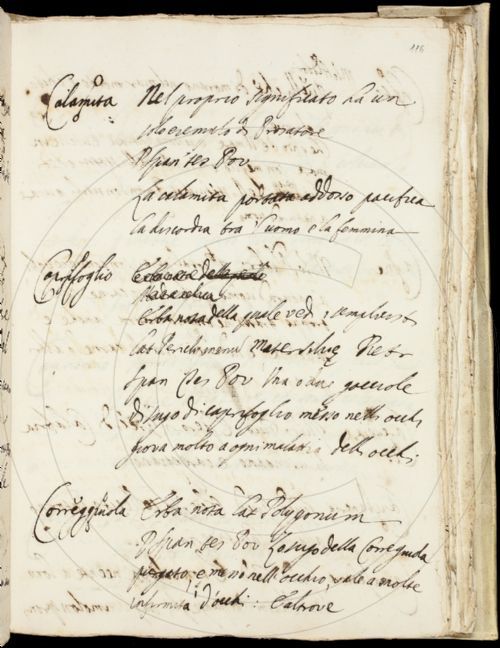 116
Calamita Nel proprio significato ha un
solo esemplo di Prosatore
P Span Tes Pov
La calamita portata addosso pacifica
la discordia tra l'uomo e la femmina
Caprifoglio
Erba nota della quale vedi
lat Periclimenu Mater silvę Pietr
Span Tes Pov Una o due gocciole
di sugo di caprifoglio messo nelli occhi
giova molto a ogni malatia delli occhi
Correggiuola Erba nota lat Polygonum
P Span tes Pov Lo sugo della Coreguola
e messo nell'occhio, vale a molte
infirmità d'occhi: e altrove